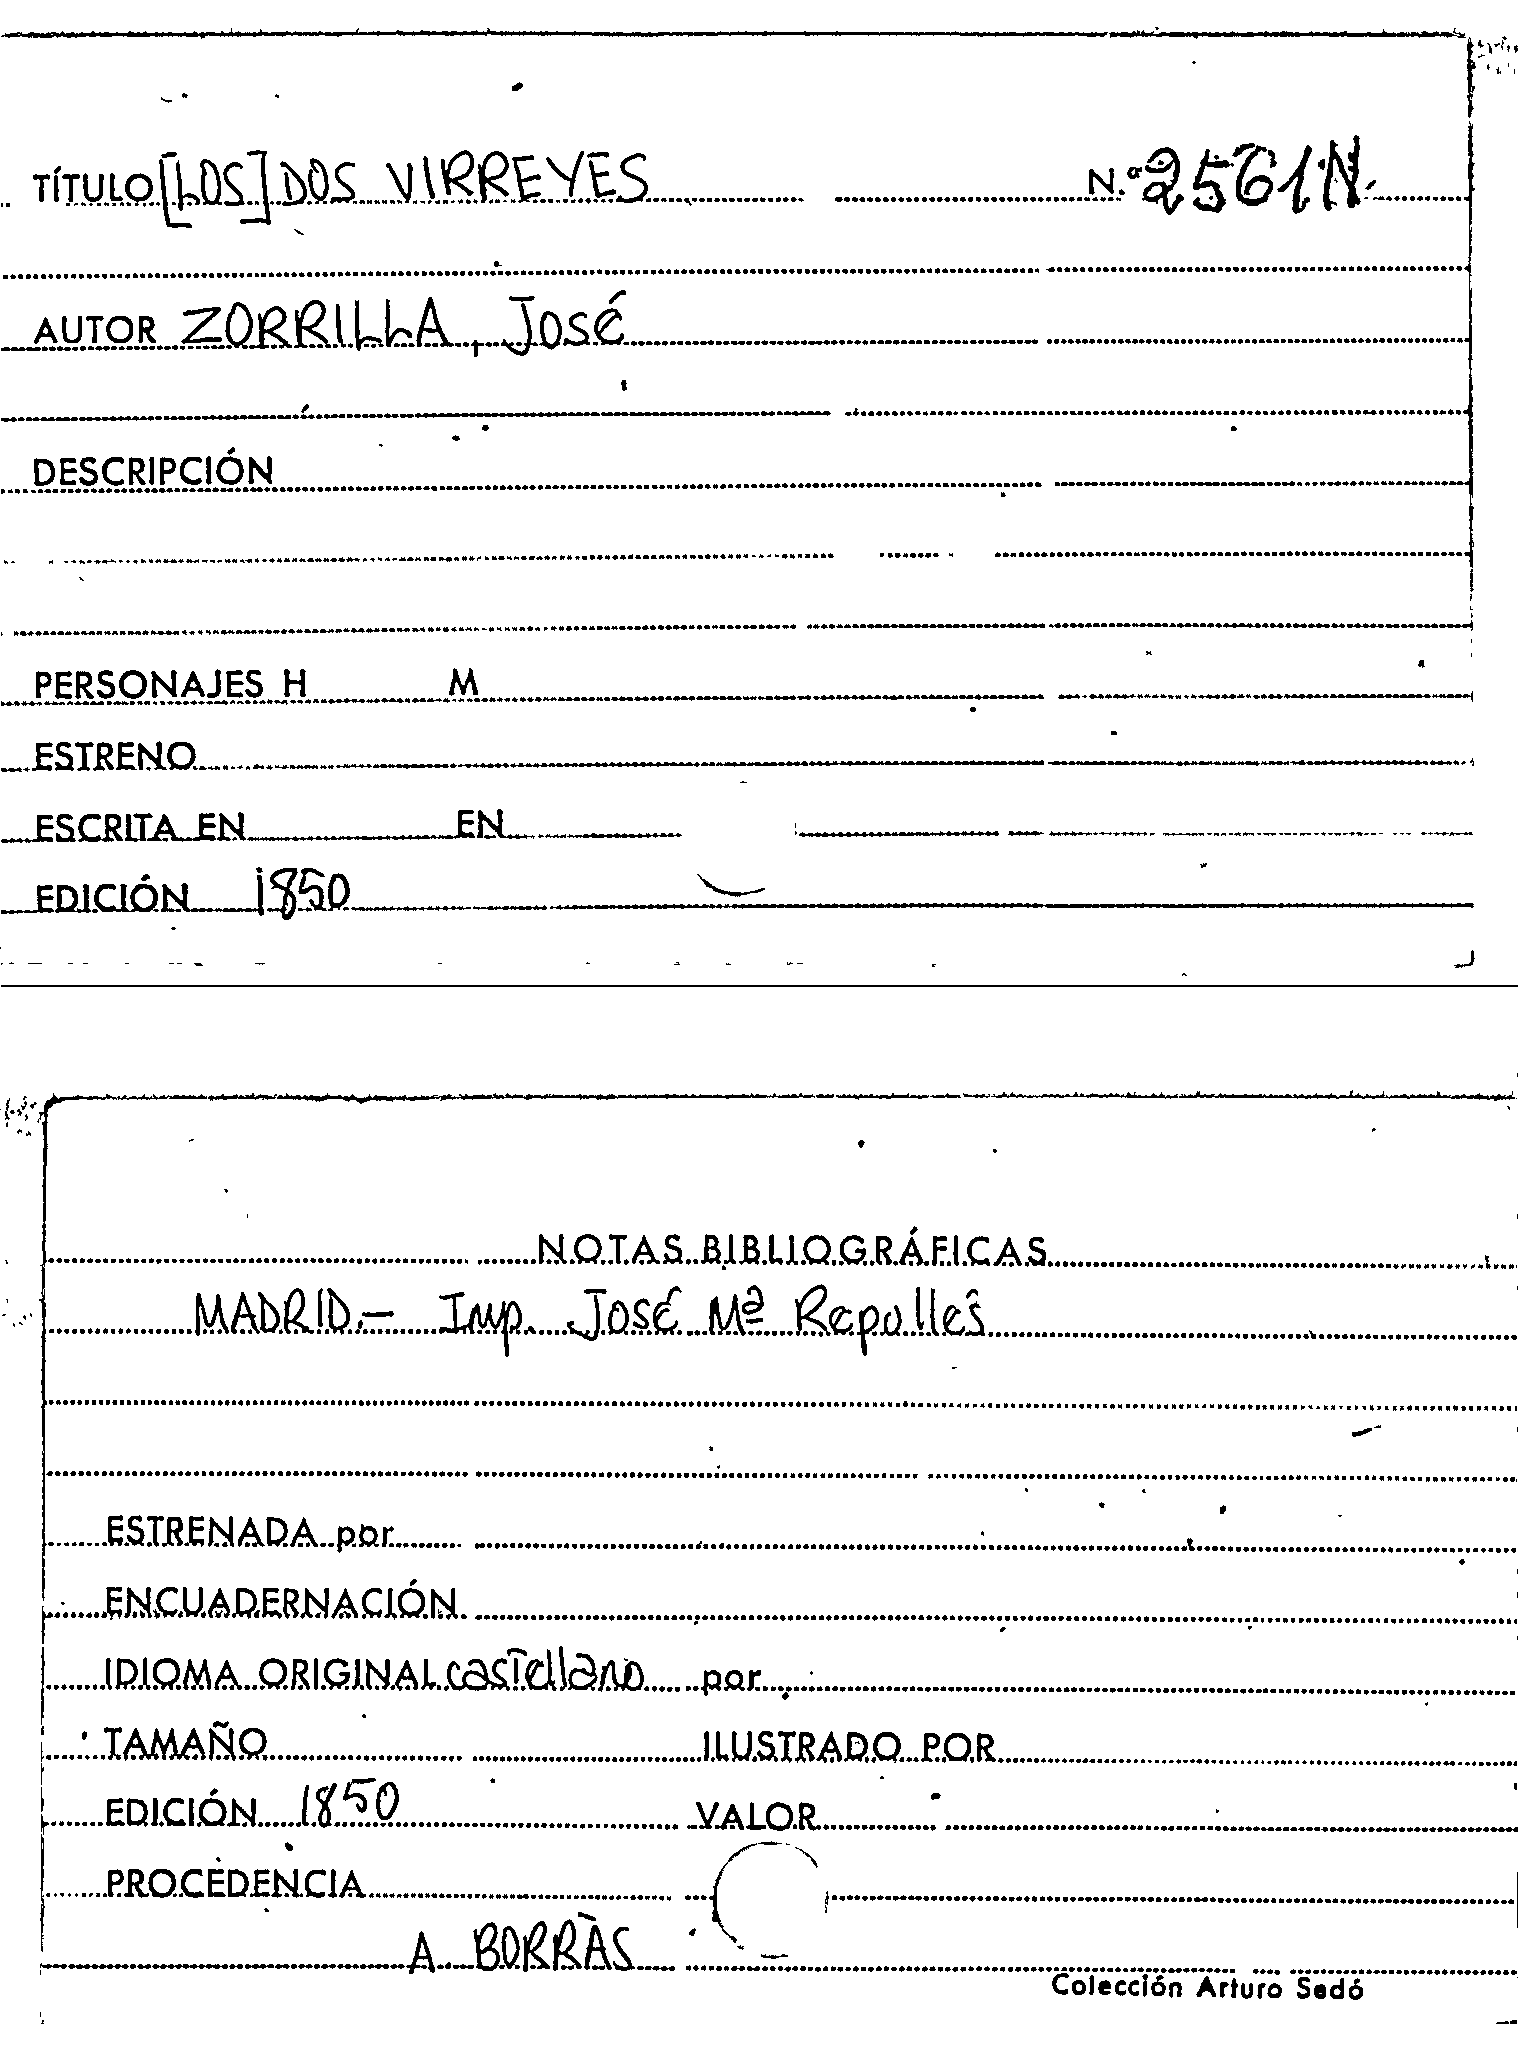 TÍTULO [LOS] DOS VIRREYES N.º 2561N
AUTOR ZORRILLA, José
DESCRIPCIÓN
PERSONAJES H M
ESTRENO
ESCRITA EN EN
EDICIÓN 1850
NOTAS BIBLIOGRÁFICAS
MADRID.- Imp. José Mª Repullés
ESTRENADA por
ENCUADERNACIÓN
IDIOMA ORIGINAL castellano por
TAMAÑO ILUSTRADO POR
EDICIÓN 1850 VALOR
PROCEDENCIA
A BORRÀS
Colección Arturo Sedó